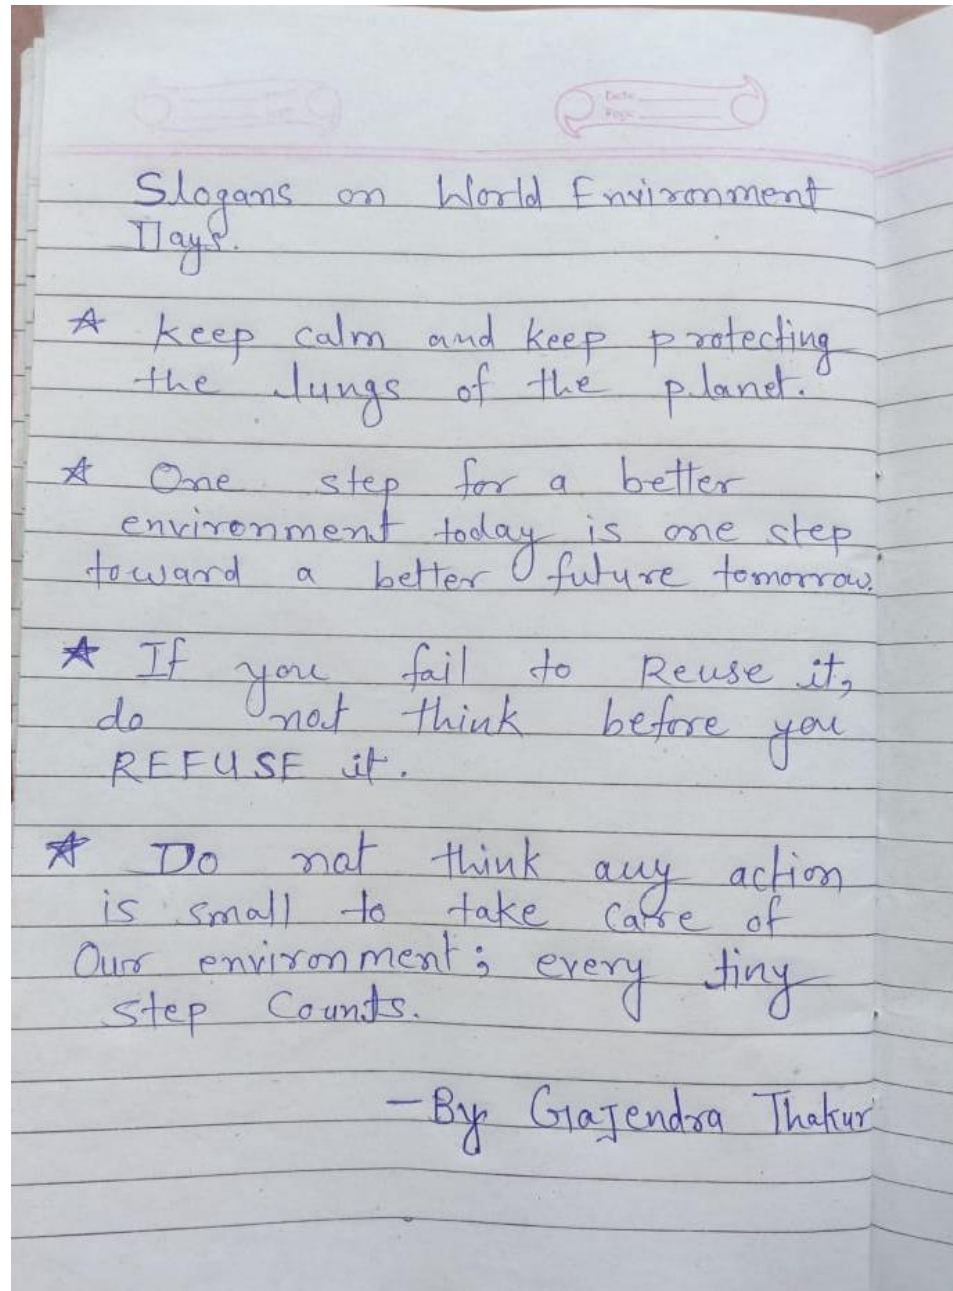 Date
Page
Slogans on World Environment
Days.
☆ Keep calm and keep protecting
the lungs of the planet.
☆ One step for a better
environment today is one step
toward a better future tomorrow.
☆ If you fail to Reuse it,
do not think before you
REFUSE it.
☆ Do not think any action
is small to take care of
Our environment; every tiny
step Counts.
- By Gajendra Thakur